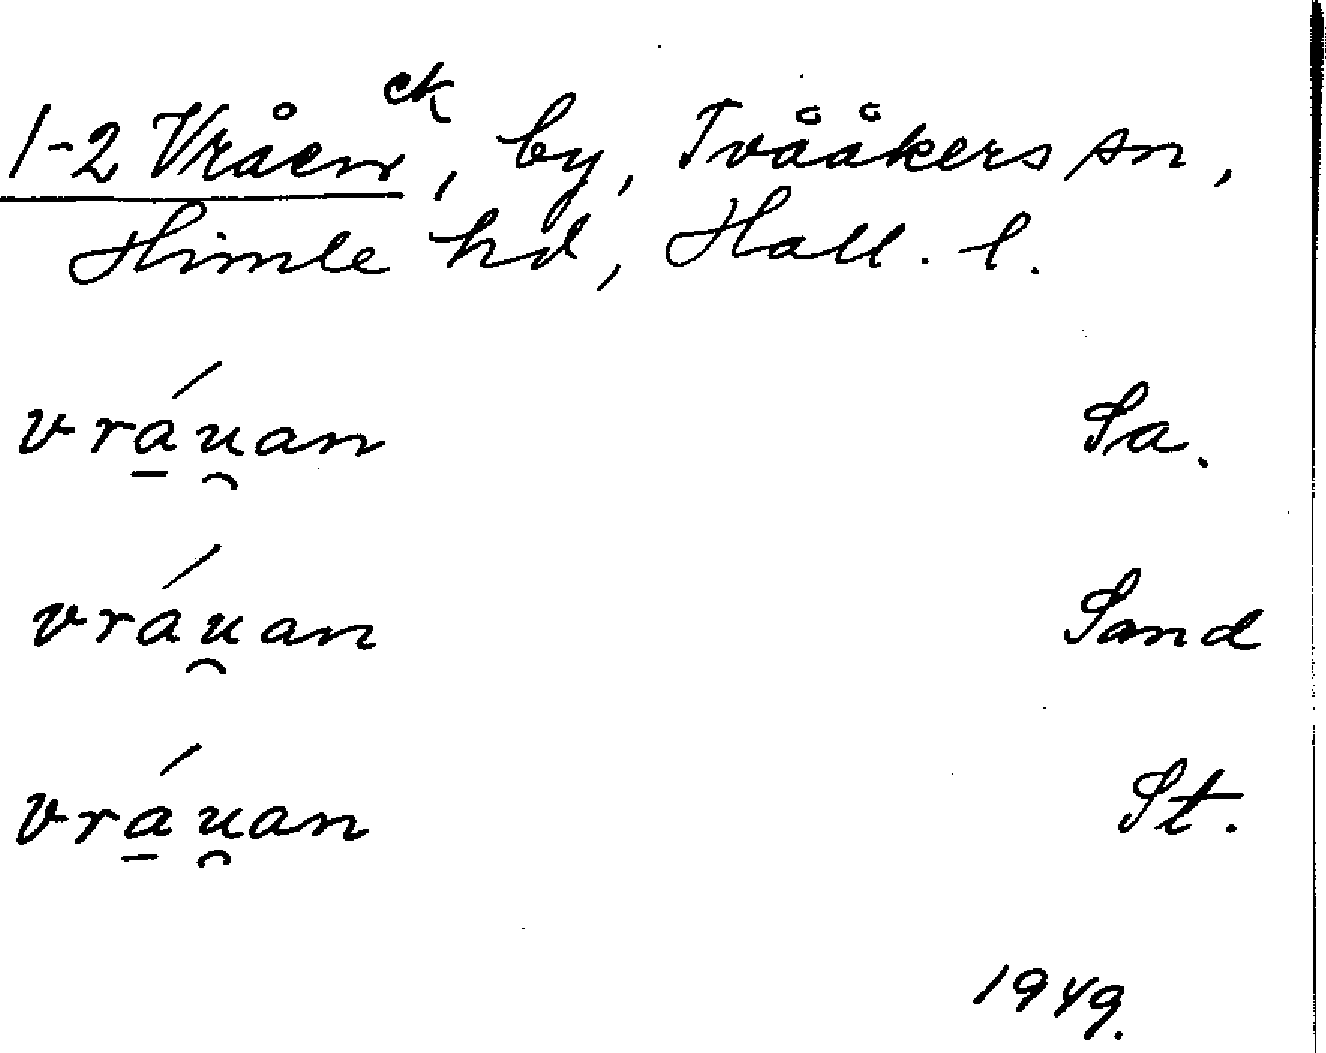 1-2 Vråen ek, by, Tvååkers sn,
Himle hd, Hall. l.
vrá̱u̯an Sa.
vráu̯an Sand
vrá̱u̯an St.
1949.